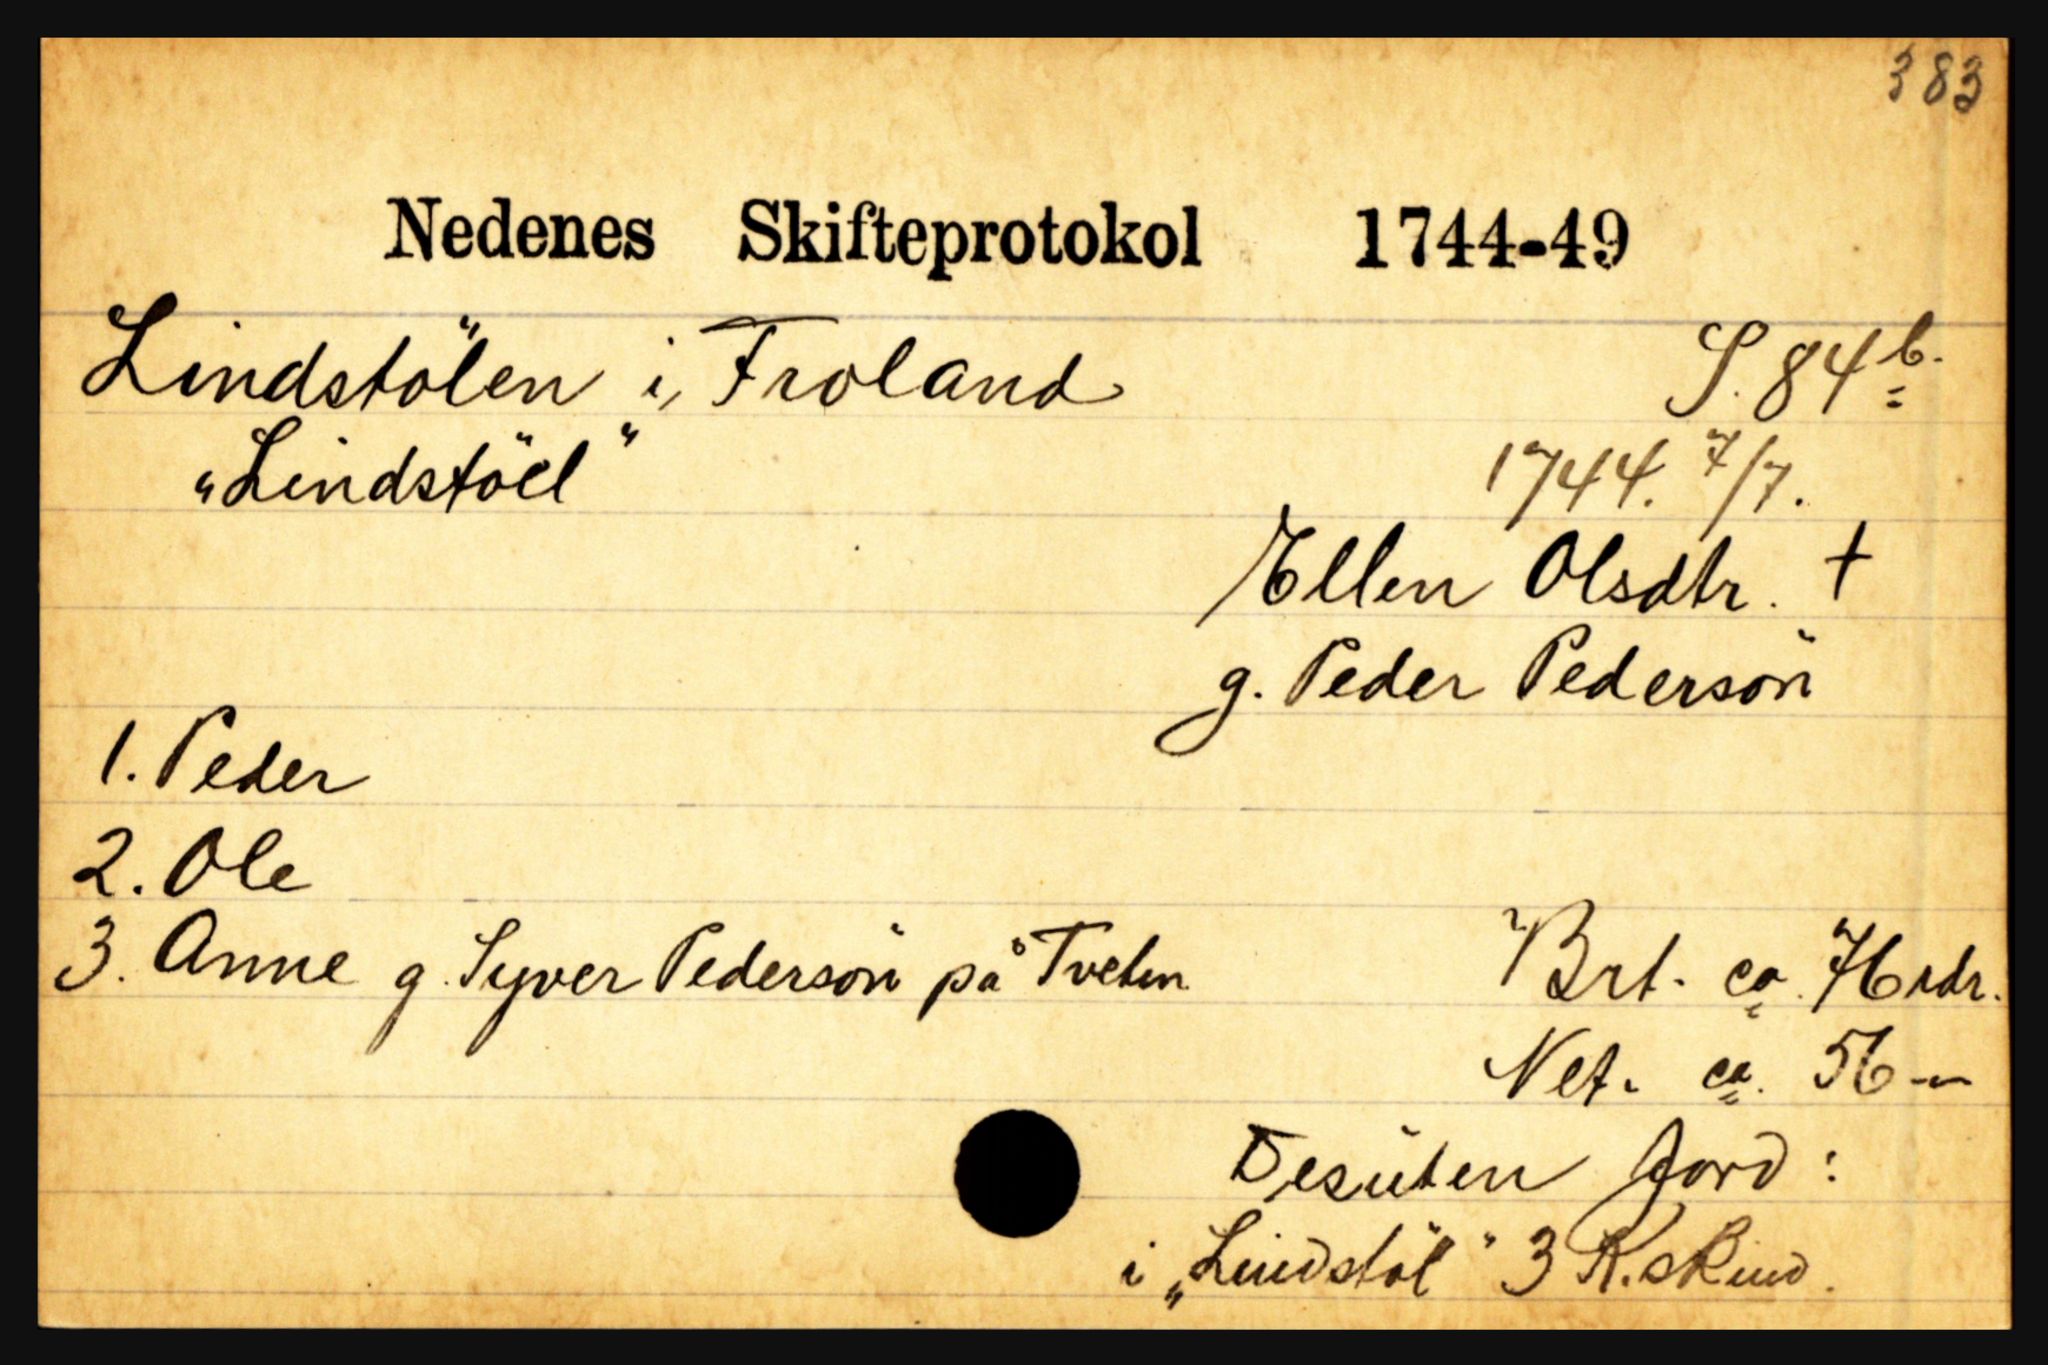 383
Nedenes Skifteprotokol 1744-49
Lindstölen i, Froland S. 84 b.
"Lindstöel" 1744. 7/7.
Ellen Olsdtr. †
g. Peder Pedersön
1. Peder
2. Ole
3. Anne g. Syver Pedersön på Tveten Brt. ca. 76 rdr.
Net. ca. 56 —
Desuten Jord:
i „Lindstöl" 3 K.skind.